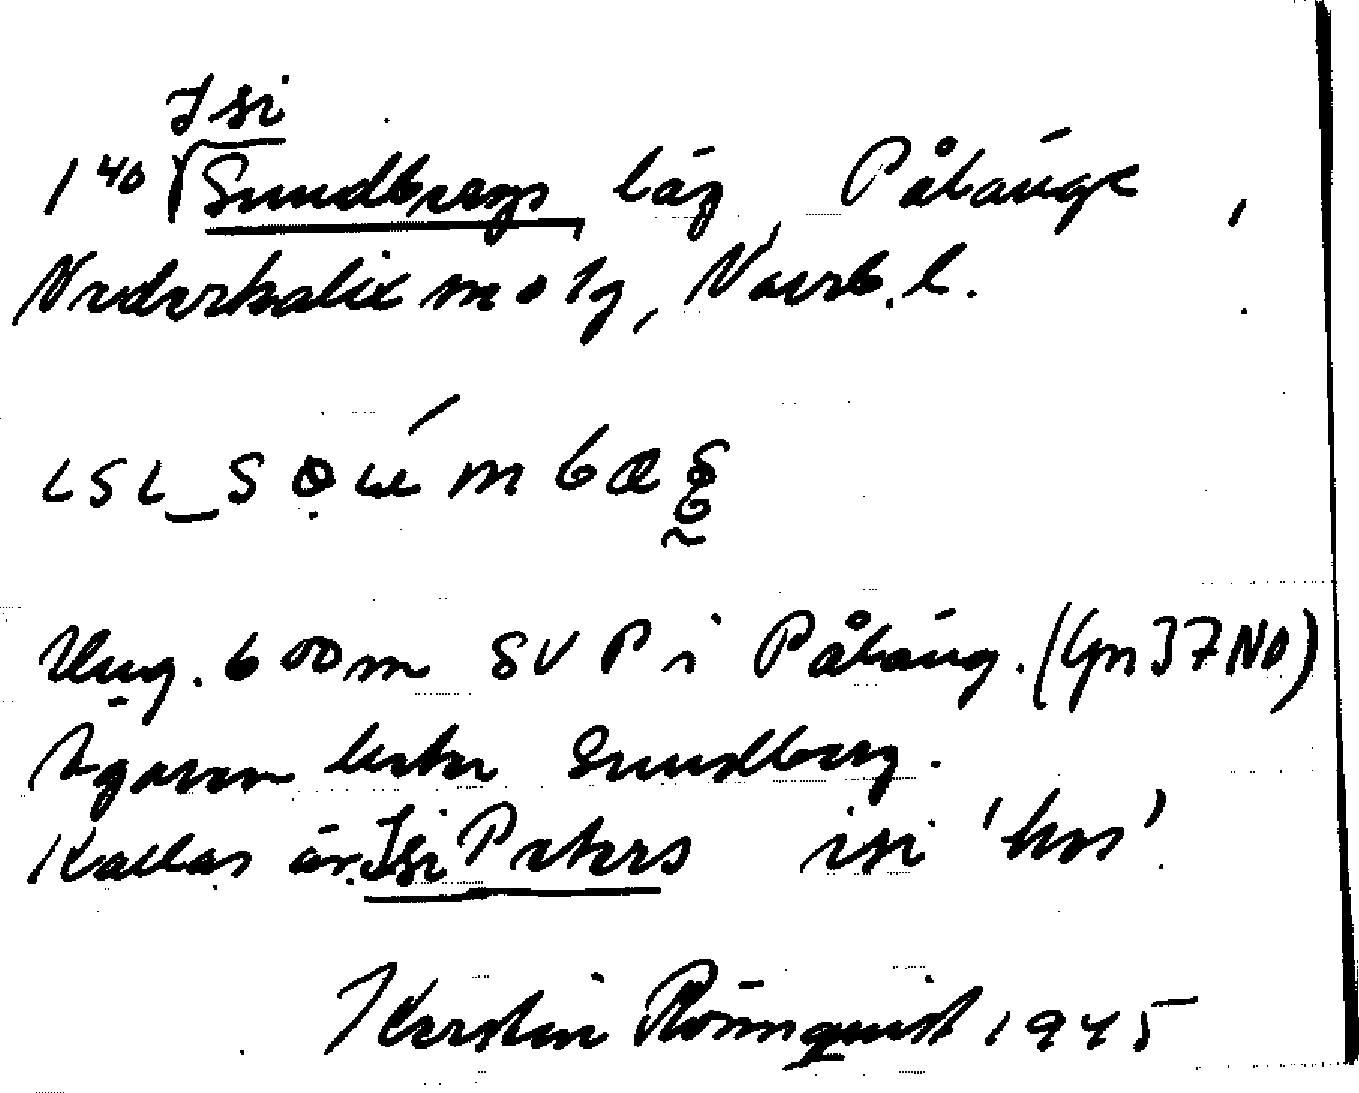 Isi
1⁴⁰ Sundbergs läg, Pålänge,
Nederkalix sn o lg, Norrb. l.
Ung. 600 m SV P i Påläng. (Gn 37 NO)
Ägaren heter Sundberg.
Kallas äv. Isi Peters isi 'hos'.
Kerstin Rönnquist 1945